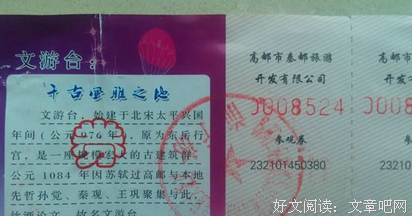 文游台：
千古风雅之地
文游台，始建于北宋太平兴国
年间（公元976年），原为东岳行
宫，是一座规模宏大的古建筑群。
公元 1084 年因苏轼过高邮与本地
先哲孙觉、秦观、王巩聚集与此，
饮酒论文，故名文游台。
高邮市秦邮旅游
开发有限公司
J008524
参观券
232101450380
高邮市
开发
J008
参
23210
好文阅读：文章吧网